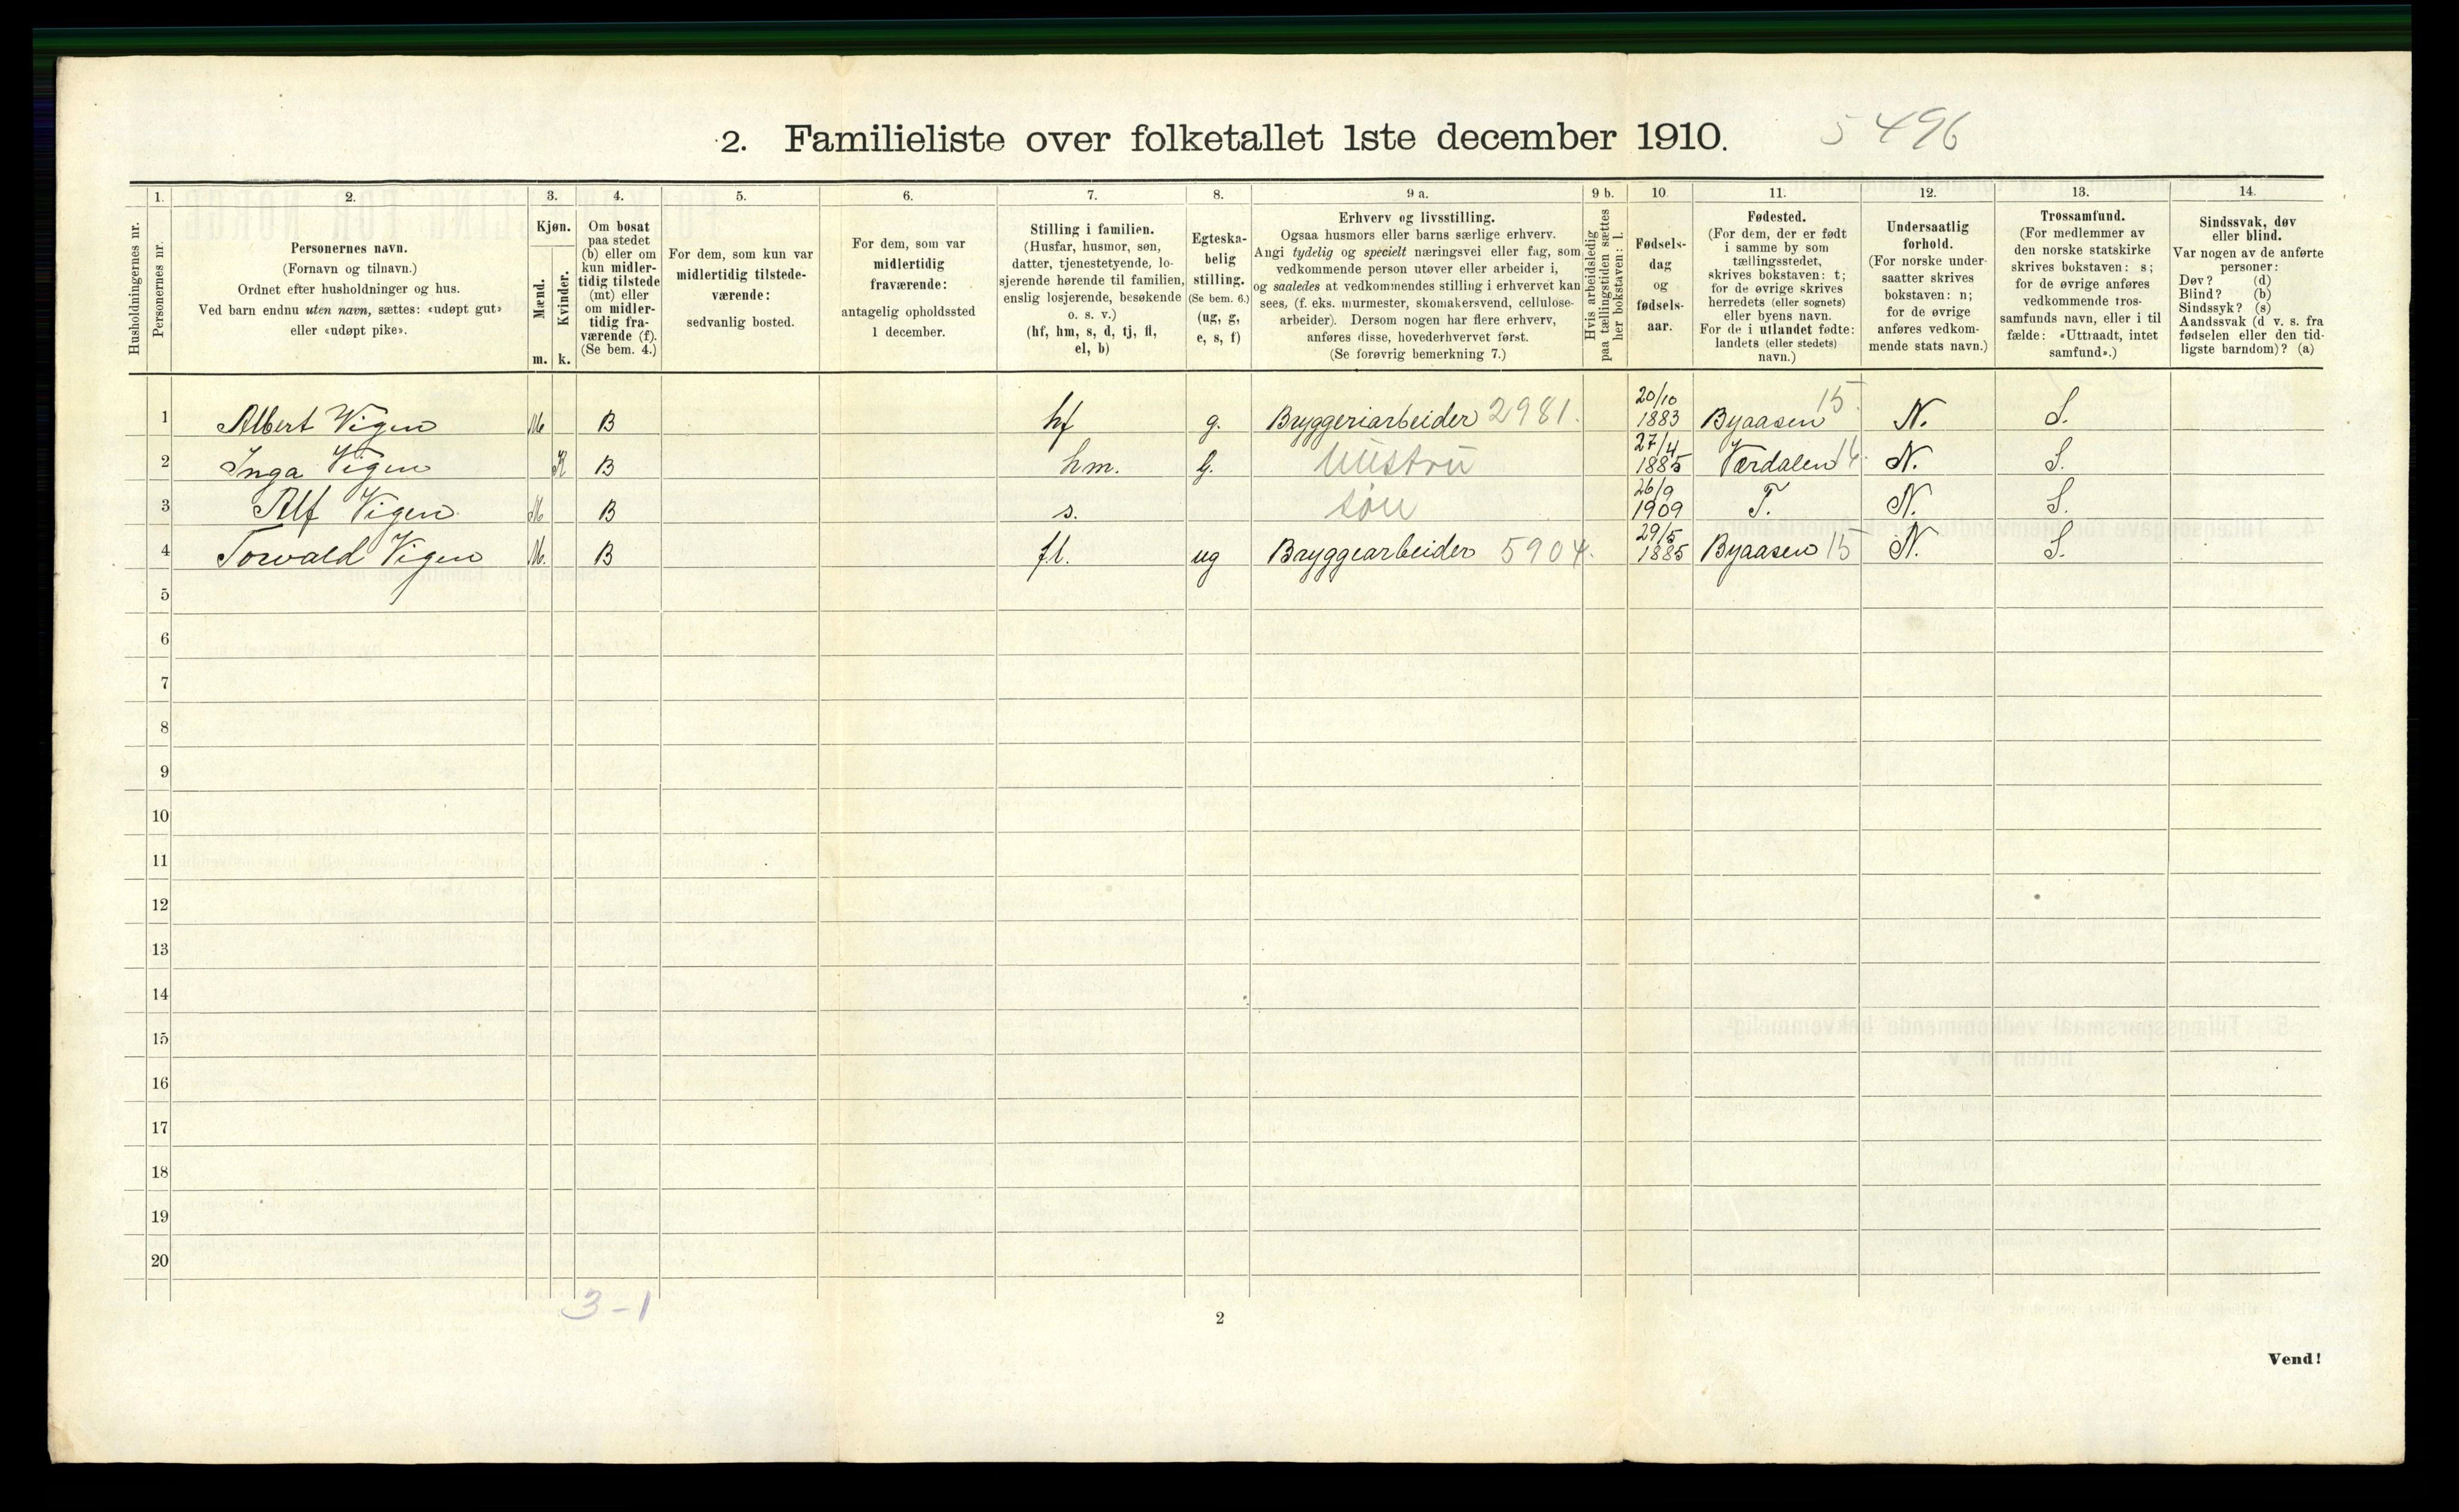 2. Familieliste over folketallet 1ste december 1910. 5496
Husholdningernes nr.
1.
Personernes nr.
2.
Personernes navn.
(Fornavn og tilnavn.)
Ordnet efter husholdninger og hus.
Ved barn endnu uten navn, sættes: «udøpt gut»
eller «udøpt pike».
3.
Kjøn.
Mænd.
Kvinder.
m. k.
4.
Om bosat
paa stedet
(b) eller om
kun midler-
tidig tilstede
(mt) eller
om midler-
tidig fra-
værende (f).
(Se bem. 4.)
5.
For dem, som kun var
midlertidig tilstede-
værende:
sedvanlig bosted.
6.
For dem, som var
midlertidig
fraværende:
antagelig opholdssted
1 december.
7.
Stilling i familien.
(Husfar, husmor, søn,
datter, tjenestetyende, lo-
sjerende hørende til familien,
enslig losjerende, besøkende
o. s. v.)
(hf, hm, s, d, tj, fl,
el, b)
8.
Egteska-
belig
stilling.
(Se bem. 6.)
(ug, g,
e, s, f)
9 a.
Erhverv og livsstilling.
Ogsaa husmors eller barns særlige erhverv.
Angi tydelig og specielt næringsvei eller fag, som
vedkommende person utøver eller arbeider i,
og saaledes at vedkommendes stilling i erhvervet kan
sees, (f. eks. murmester, skomakersvend, cellulose-
arbeider). Dersom nogen har flere erhverv,
anføres disse, hovederhvervet først.
(Se forøvrig bemerkning 7.)
9 b.
Hvis arbeidsledig
paa tællingstiden sættes
her bokstaven: l.
10.
Fødsels-
dag
og
fødsels-
aar.
11.
Fødested.
(For dem, der er født
i samme by som
tællingsstedet,
skrives bokstaven: t;
for de øvrige skrives
herredets (eller sognets)
eller byens navn.
For de i utlandet fødte:
landets (eller stedets)
navn.)
12.
Undersaatlig
forhold.
(For norske under-
saatter skrives
bokstaven: n;
for de øvrige
anføres vedkom-
mende stats navn.)
13.
Trossamfund.
(For medlemmer av
den norske statskirke
skrives bokstaven: s;
for de øvrige anføres
vedkommende tros-
samfunds navn, eller i til
fælde: «Uttraadt, intet
samfund».)
14.
Sindssvak, døv
eller blind.
Var nogen av de anførte
personer:
Døv? (d)
Blind? (b)
Sindssyk? (s)
Aandssvak (d v. s. fra
fødselen eller den tid-
ligste barndom)? (a)
1 Albert Vigen M B hf g. Bryggeriarbeider 2981. 20/10 1883 Byaasen 15 N. S.
2 Inga Vigen K B hm. G. hustru 27/4 1885 Værdalen N. S.
3 Alf Vigen M B s. søn 26/9 1909 T. N. S.
4 Torvald Vigen M. B f.l. ug Bryggearbeider 5904. 29/5 1885 Byaasen 15 N. S.
5
6
7
8
9
10
11
12
13
14
15
16
17
18
19
20
3-1
2
Vend!